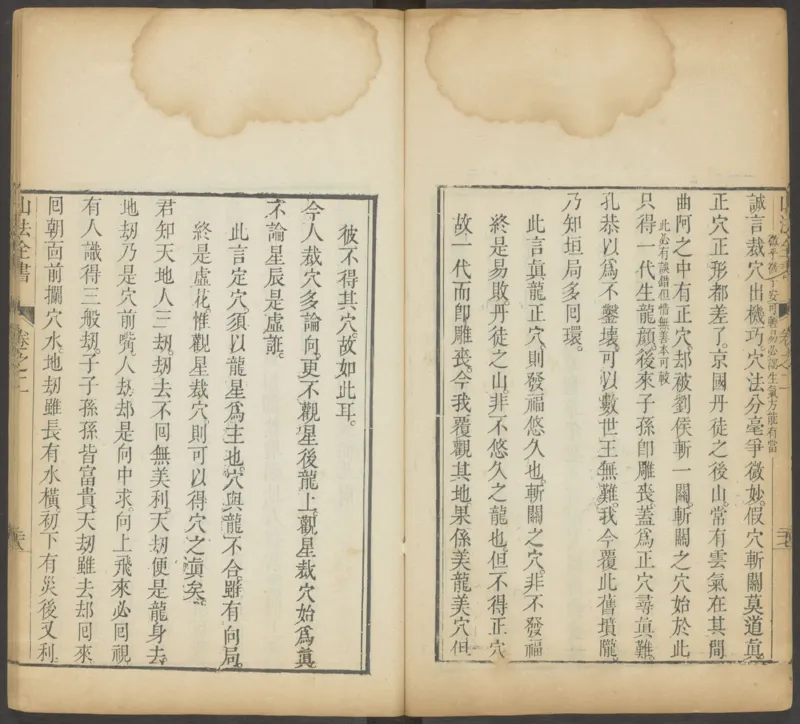 誠言裁穴出機巧穴法分毫爭微妙假穴斬關莫道眞
正穴正形都差了京國丹徒之後山常有雲氣在其間
曲阿之中有正穴却被劉侯斬一關斬關之穴始於此
此必有誤錯但惜無善本可較
只得一代生龍顔後來子孫卽雕喪蓋爲正穴尋眞難
孔恭以爲不鑿壞可以數世王無難我今覆此舊墳隴
乃知垣局多回環
此言眞龍正穴則發福悠久也斬關之穴非不發福
終是易敗丹徒之山非不悠久之龍也但不得正穴
故一代而卽雕喪今我覆觀其地果係美龍美穴但
彼不得其穴故如此耳
今人裁穴多論向更不觀星後龍上觀星裁穴始爲眞
不論星辰是虛誑
此言定穴須以龍星爲主也穴與龍不合雖有向局
終是虛花惟觀星裁穴則可以得穴之眞矣
君知天地人三刼刼去不回無美利天刼便是龍身去
地刼乃是穴前嘴人刼却是向中求向上飛來必回視
有人識得三般刼子子孫孫皆富貴天刼雖去却回來
回朝面前攔穴水地刼雖長有水橫初下有災後又利
山法全書
卷之二